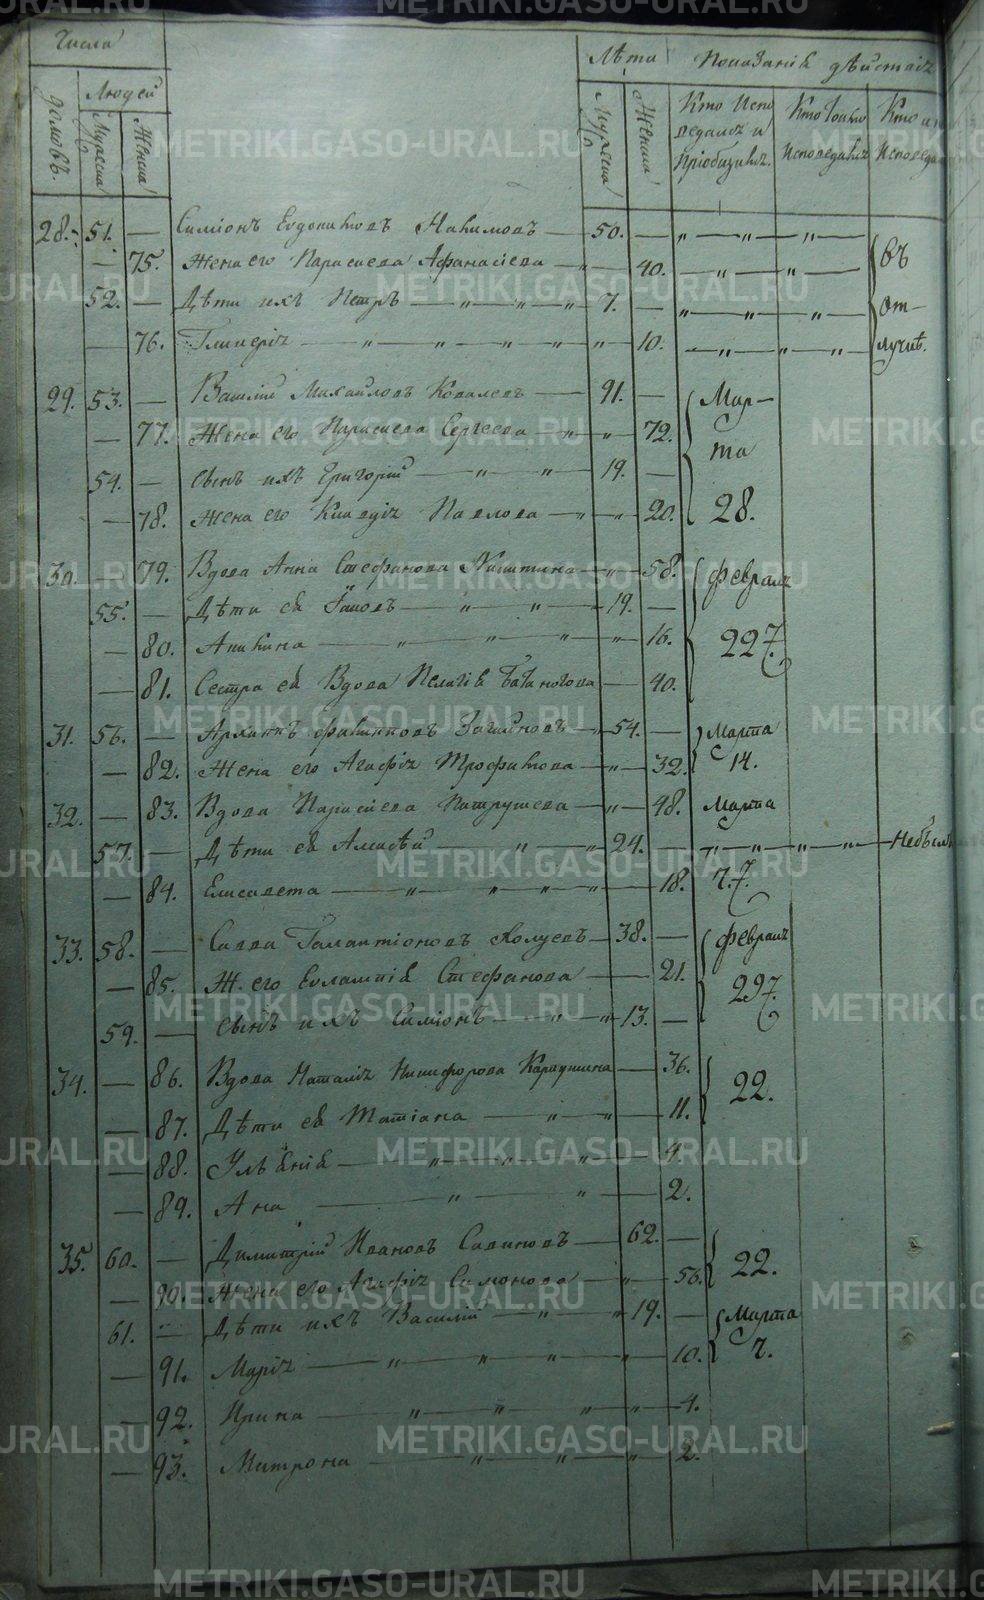 Числа
Лѣта
Показанiѣ дѣйствiя
домовъ.
Людей
Мужска
Женска
Мужска
Женска
Кто Испо
ведался и
Прiобщился.
Кто Токмо
Исповедался
Кто
Исповеда
28. 51. — Симiонъ Евдокимовъ — 50. — „ — „ — „ —
— 75. Жена его Параскева Афанасiева — „ — 40. — „ — „ — въ
52. — Дѣти ихъ Петръ — „ „ „ 7. — „ — „ — „ — от-
— 76. Гликерiя — „ „ „ „ „ — 10. — „ — „ — „ лучкѣ.
29. 53. — Василiй Михайловъ Ковалевъ — 91. — Мар-
— 77. Жена его Параскева Сергеева — „ „ — 72. та
54. — Сынъ ихъ Григорiй — „ „ — 19. —
— 78. Жена его Клавдiя Павлова — „ — „ — 20. 28.
30. 79. Вдова Анна Стефанова — „ — 58. Февраля
55. — Дѣти ея — „ „ — 19. —
— 80. Акилина — „ „ „ „ — 16. 227.
— 81. Сестра ея Вдова Пелагiя — 40.
31. 56. — — „ 54. — Марта
— 82. Жена его Агафiя Трофимова — „ — 32. 14.
32. — 83. Вдова Параскева Патрушева — „ — 48. Марта
57. — Дѣти ея Алексѣй — „ „ „ 24. — „ — „ — „ — „ — Небылъ
— 84. Елисавета — „ „ „ „ — 18. 7.
33. 58. — Савва Галактiоновъ — 38. — Февраля
— 85. Ж. его Евлампiя Стефанова — 21. 297.
59. — Сынъ ихъ Симiонъ — „ — „ 13. —
34. — 86. Вдова Наталiя Никифорова — 36.
— 87. Дѣти ея Татiана — „ — „ — 11. 22.
— 88. Ульянiя — „ „ „ — 4.
— 89. Ана — „ — „ — 2.
35. 60. — Димитрiй Ивановъ Савиновъ — 62. —
— 90. Жена его Агафiя Симонова — „ — 56. 22.
61. — Дѣти ихъ Василiй — „ — „ 19. — Марта
— 91. Марiя — „ „ „ „ — 10. 7.
— 92. Ирина — „ „ „ „ — 4.
— 93. Митрона — „ „ „ — 2.
METRIKI.GASO-URAL.RU